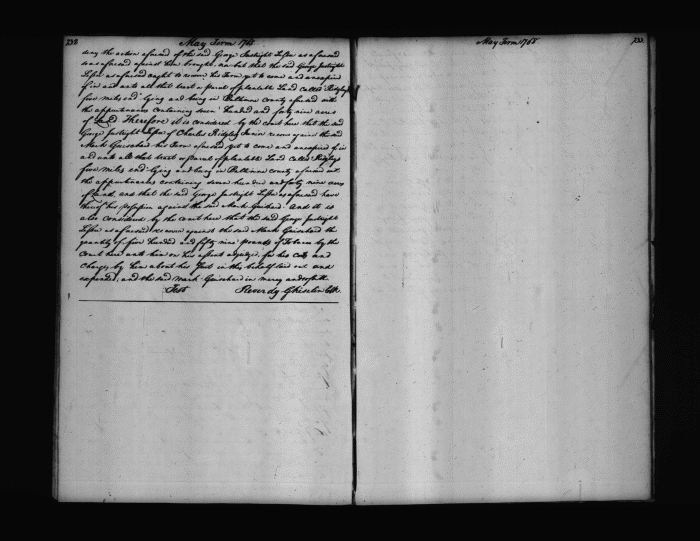 232
May Term 1765
deny the action aforesaid of the said George Justright Lessee as aforesaid
as aforesaid against him brought nor but that the said George Justright
Lessee as aforesaid ought to recover his Term yet to come and unexpired
of in and unto all that tract or parcel of plantable Land called Ridgelys
five miles end lying and being in Baltimore County aforesaid with
the appurtenances containing seven hundred and forty nine acres
of Land Therefore it is considered by the Court here that the said
George Justright Lessee of Charles Ridgley Junior recover against the said
Mark Guishard his Term aforesaid yet to come and unexpired of in
and unto all that tract or parcel of plantable Land called Ridgelys
five miles end lying and being in Baltimore County aforesaid with
the appurtenances containing seven hundred and forty nine acres
of Land, and that the said George Justright Lessee as aforesaid have
thereof his possession against the said Mark Guishard. And it is
also considered by the Court here that the said George Justright
Lessee as aforesaid recover against the said Mark Guishard the
quantity of five hundred and fifty nine pounds of Tobacco by the
Court here unto him on his assent adjudged for his Costs and
Charges by him about his Suit in this behalf laid out and
expended, and the said Mark Guishard in mercy and so forth
Test Reverdy Ghiselin Clk.
May Term 1765
233